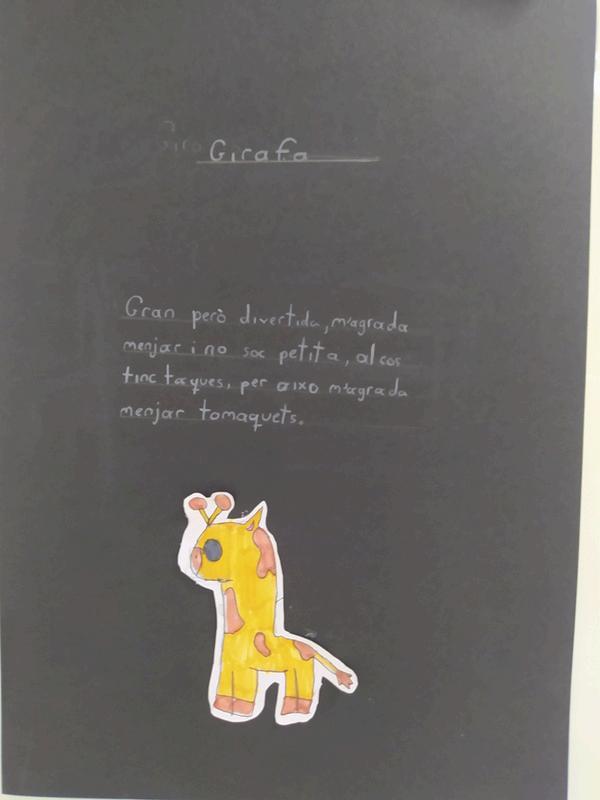 Girafa
Gran però divertida, m'agrada
menjar i no soc petita, al cos
tinc taques, per aixo m'agrada
menjar tomaquets.